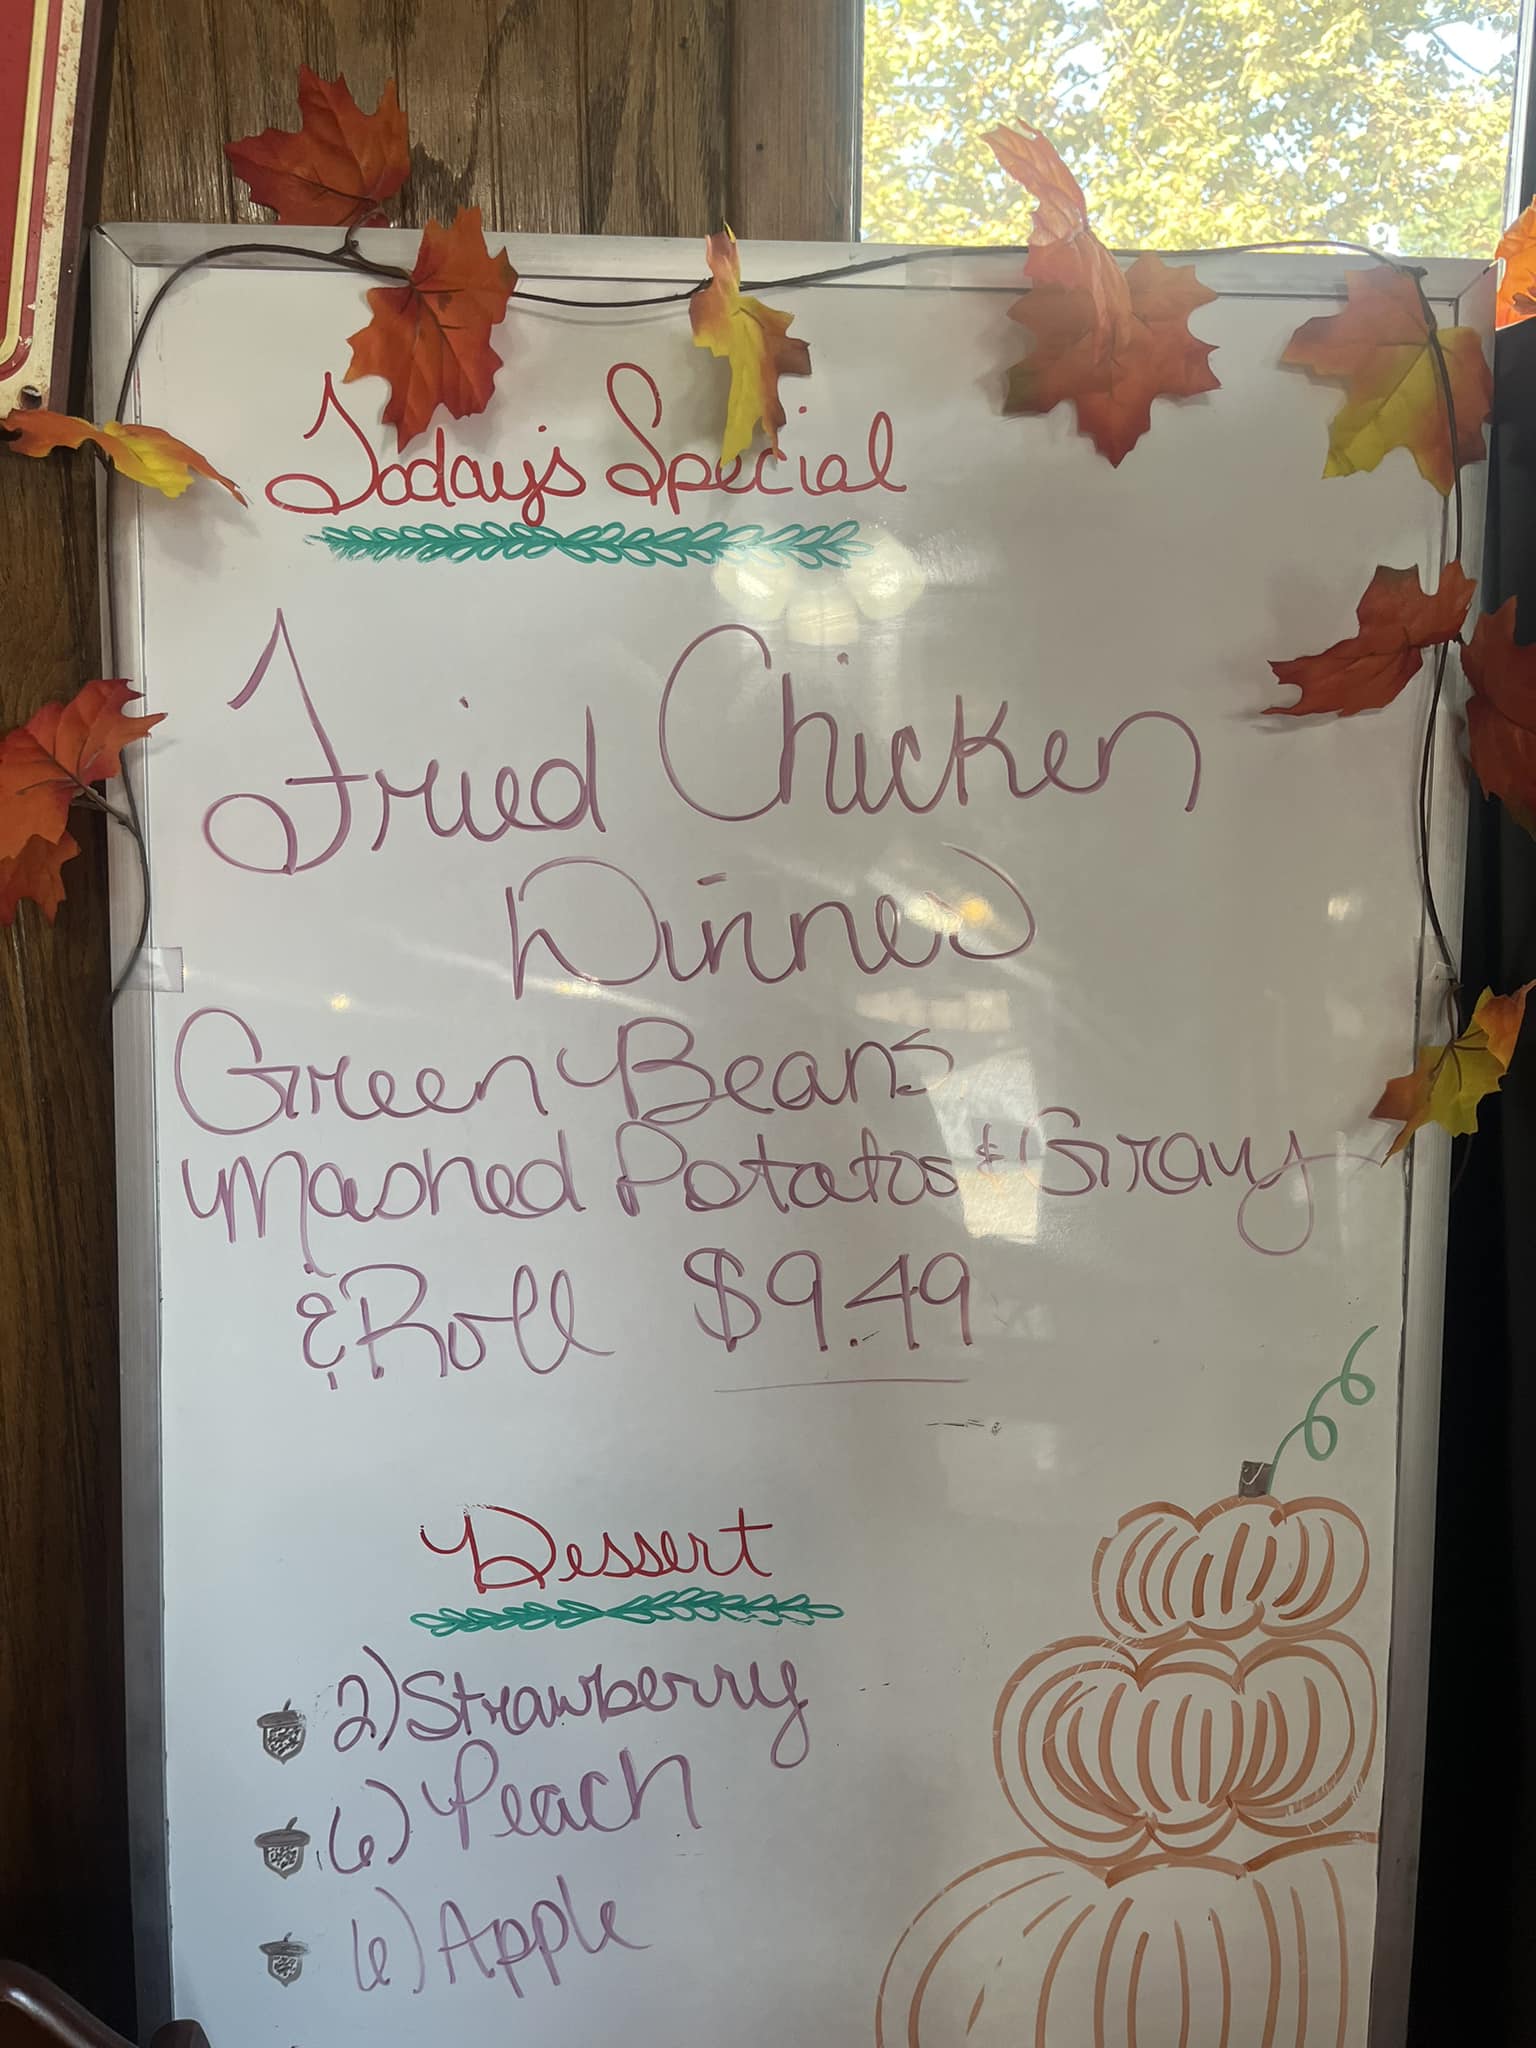 Today's Special
Fried Chicken
Dinner
Green Beans
Mashed Potatos & Gravy
& Roll $9.49
Dessert
2) Strawberry
6) Peach
6) Apple